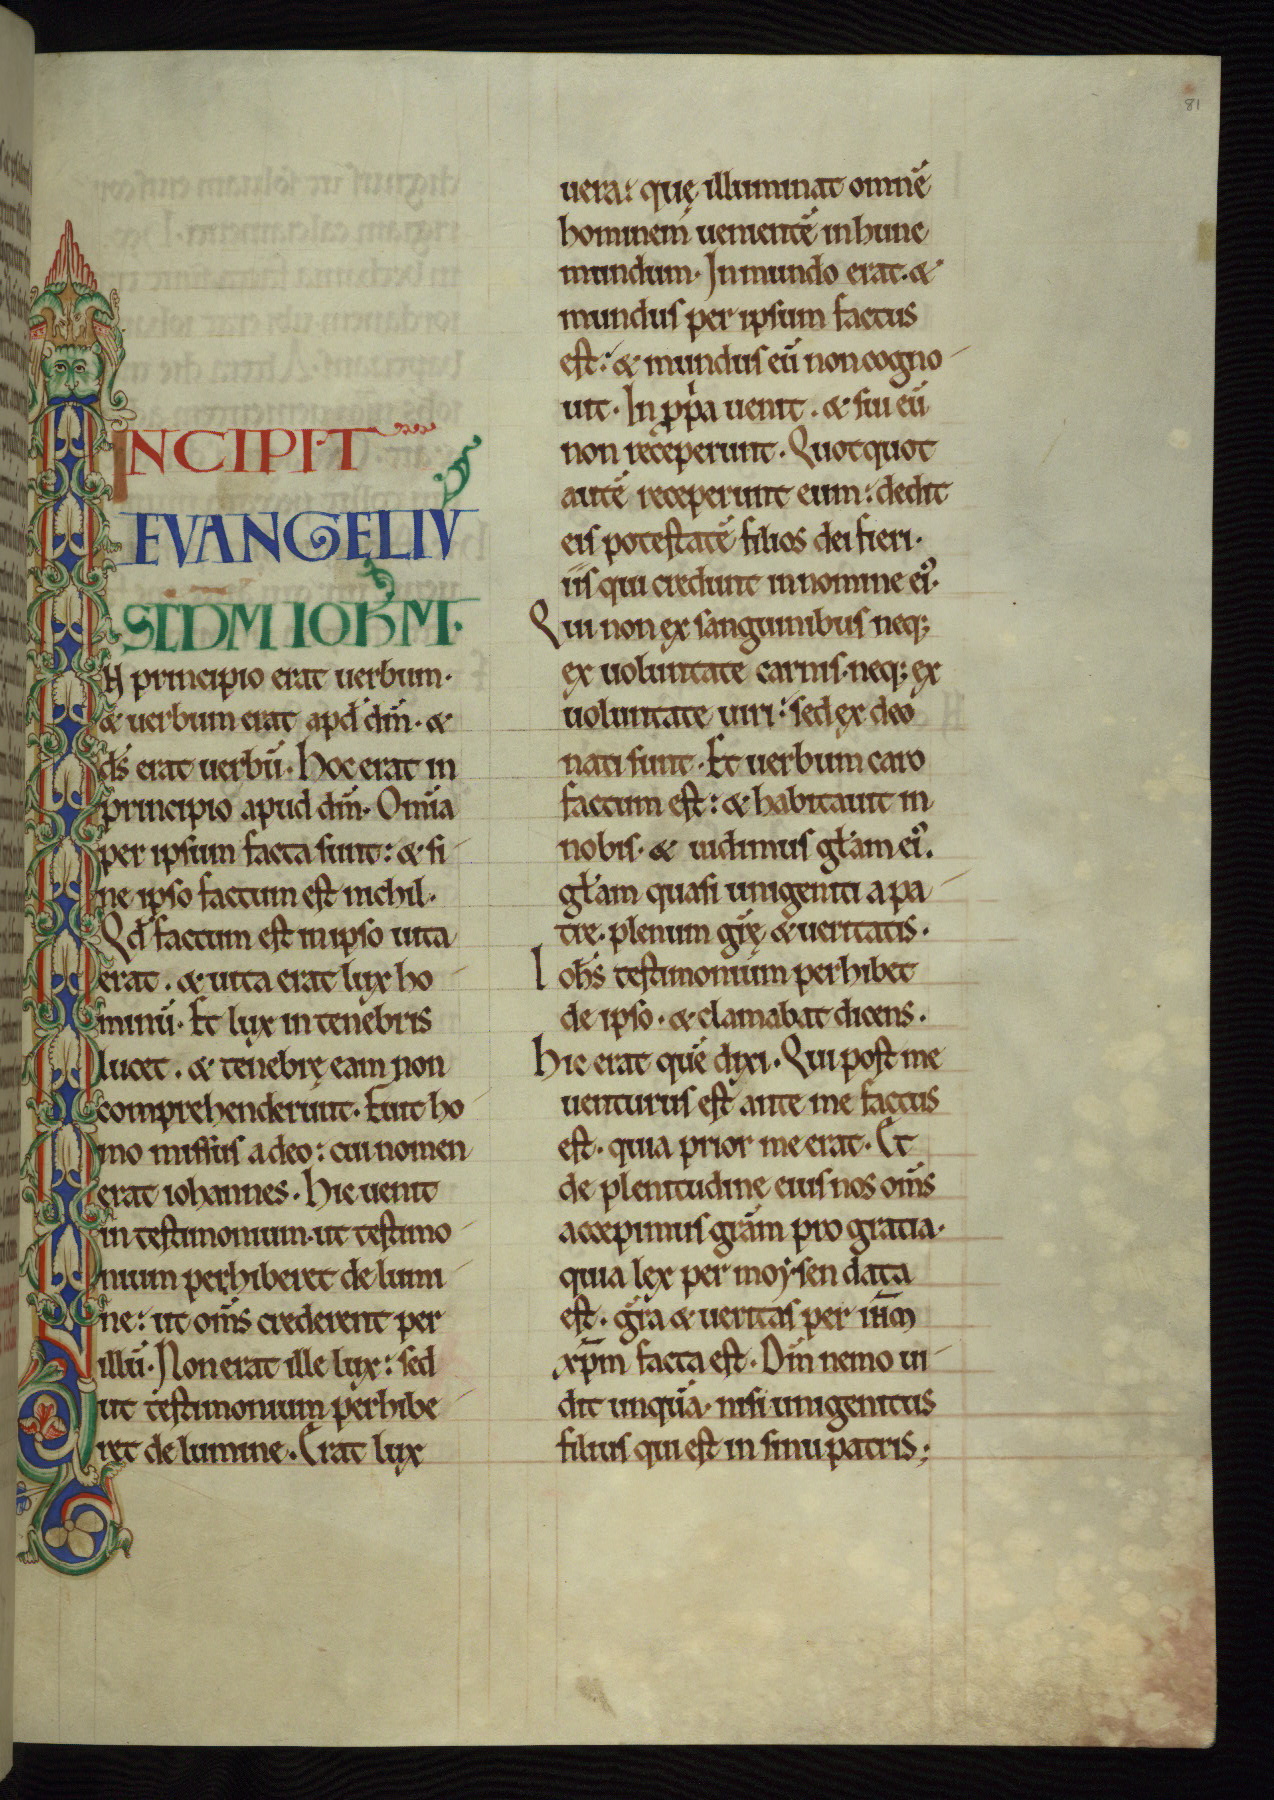 81
INCIPIT
EVANGELIV̄
S̄C̄DM IOHM·
N principio erat uerbum·
& uerbum erat apd̓ dm̄· &
ds̄ erat uerbū· Hoc erat in
principio apud dm̄· Omīa
per ipsum facta sunt: & si
ne ipso factum est nichil·
Qd̓ factum est in ipso uita
erat· & uita erat lux ho
minū· Et lux in tenebris
lucet· & tenebrę eam non
comprehenderunt· Fuit ho
mo missus a deo: cui nomen
erat iohannes· Hic uenit
in testimonium· ut testimo
nium perhiberet de lumi
ne: ut om̄s crederent per
illū· Non erat ille lux: sed
ut testimonium perhibe
ret de lumine· Erat lux
uera: quę illuminat omnē
hominem uenientē in hunc
mundum· In mundo erat· &
mundus per ipsum factus
est: & mundus eū non cogno
uit· In pͥpͥa uenit· & sui eū
non receperunt· Quotquot
autē receperunt eum: dedit
eis potestatē filios dei fieri·
iis qui credunt in nomine ei᾿·
Qui non ex sanguinibus neq;
ex uoluntate carnis· neq; ex
uoluntate uiri: sed ex deo
nati sunt· Et uerbum caro
factum est: & habitauit in
nobis· & uidimus gl̄am ei᾿·
gl̄am quasi unigeniti a pa
tre· plenum gr̄ę & ueritatis·
Ioh̄s testimonium perhibet
de ipso· & clamabat dicens·
Hic erat quē dixi· Qui post me
uenturus est ante me factus
est· quia prior me erat· Et
de plenitudine eius nos om̄s
accepimus grām pro gratia·
quia lex per moysen data
est· gr̄a & ueritas per ih̄m
xp̄m facta est· Dm̄ nemo ui
dit unquā· nisi unigenitus
filius qui est in sinu patris;